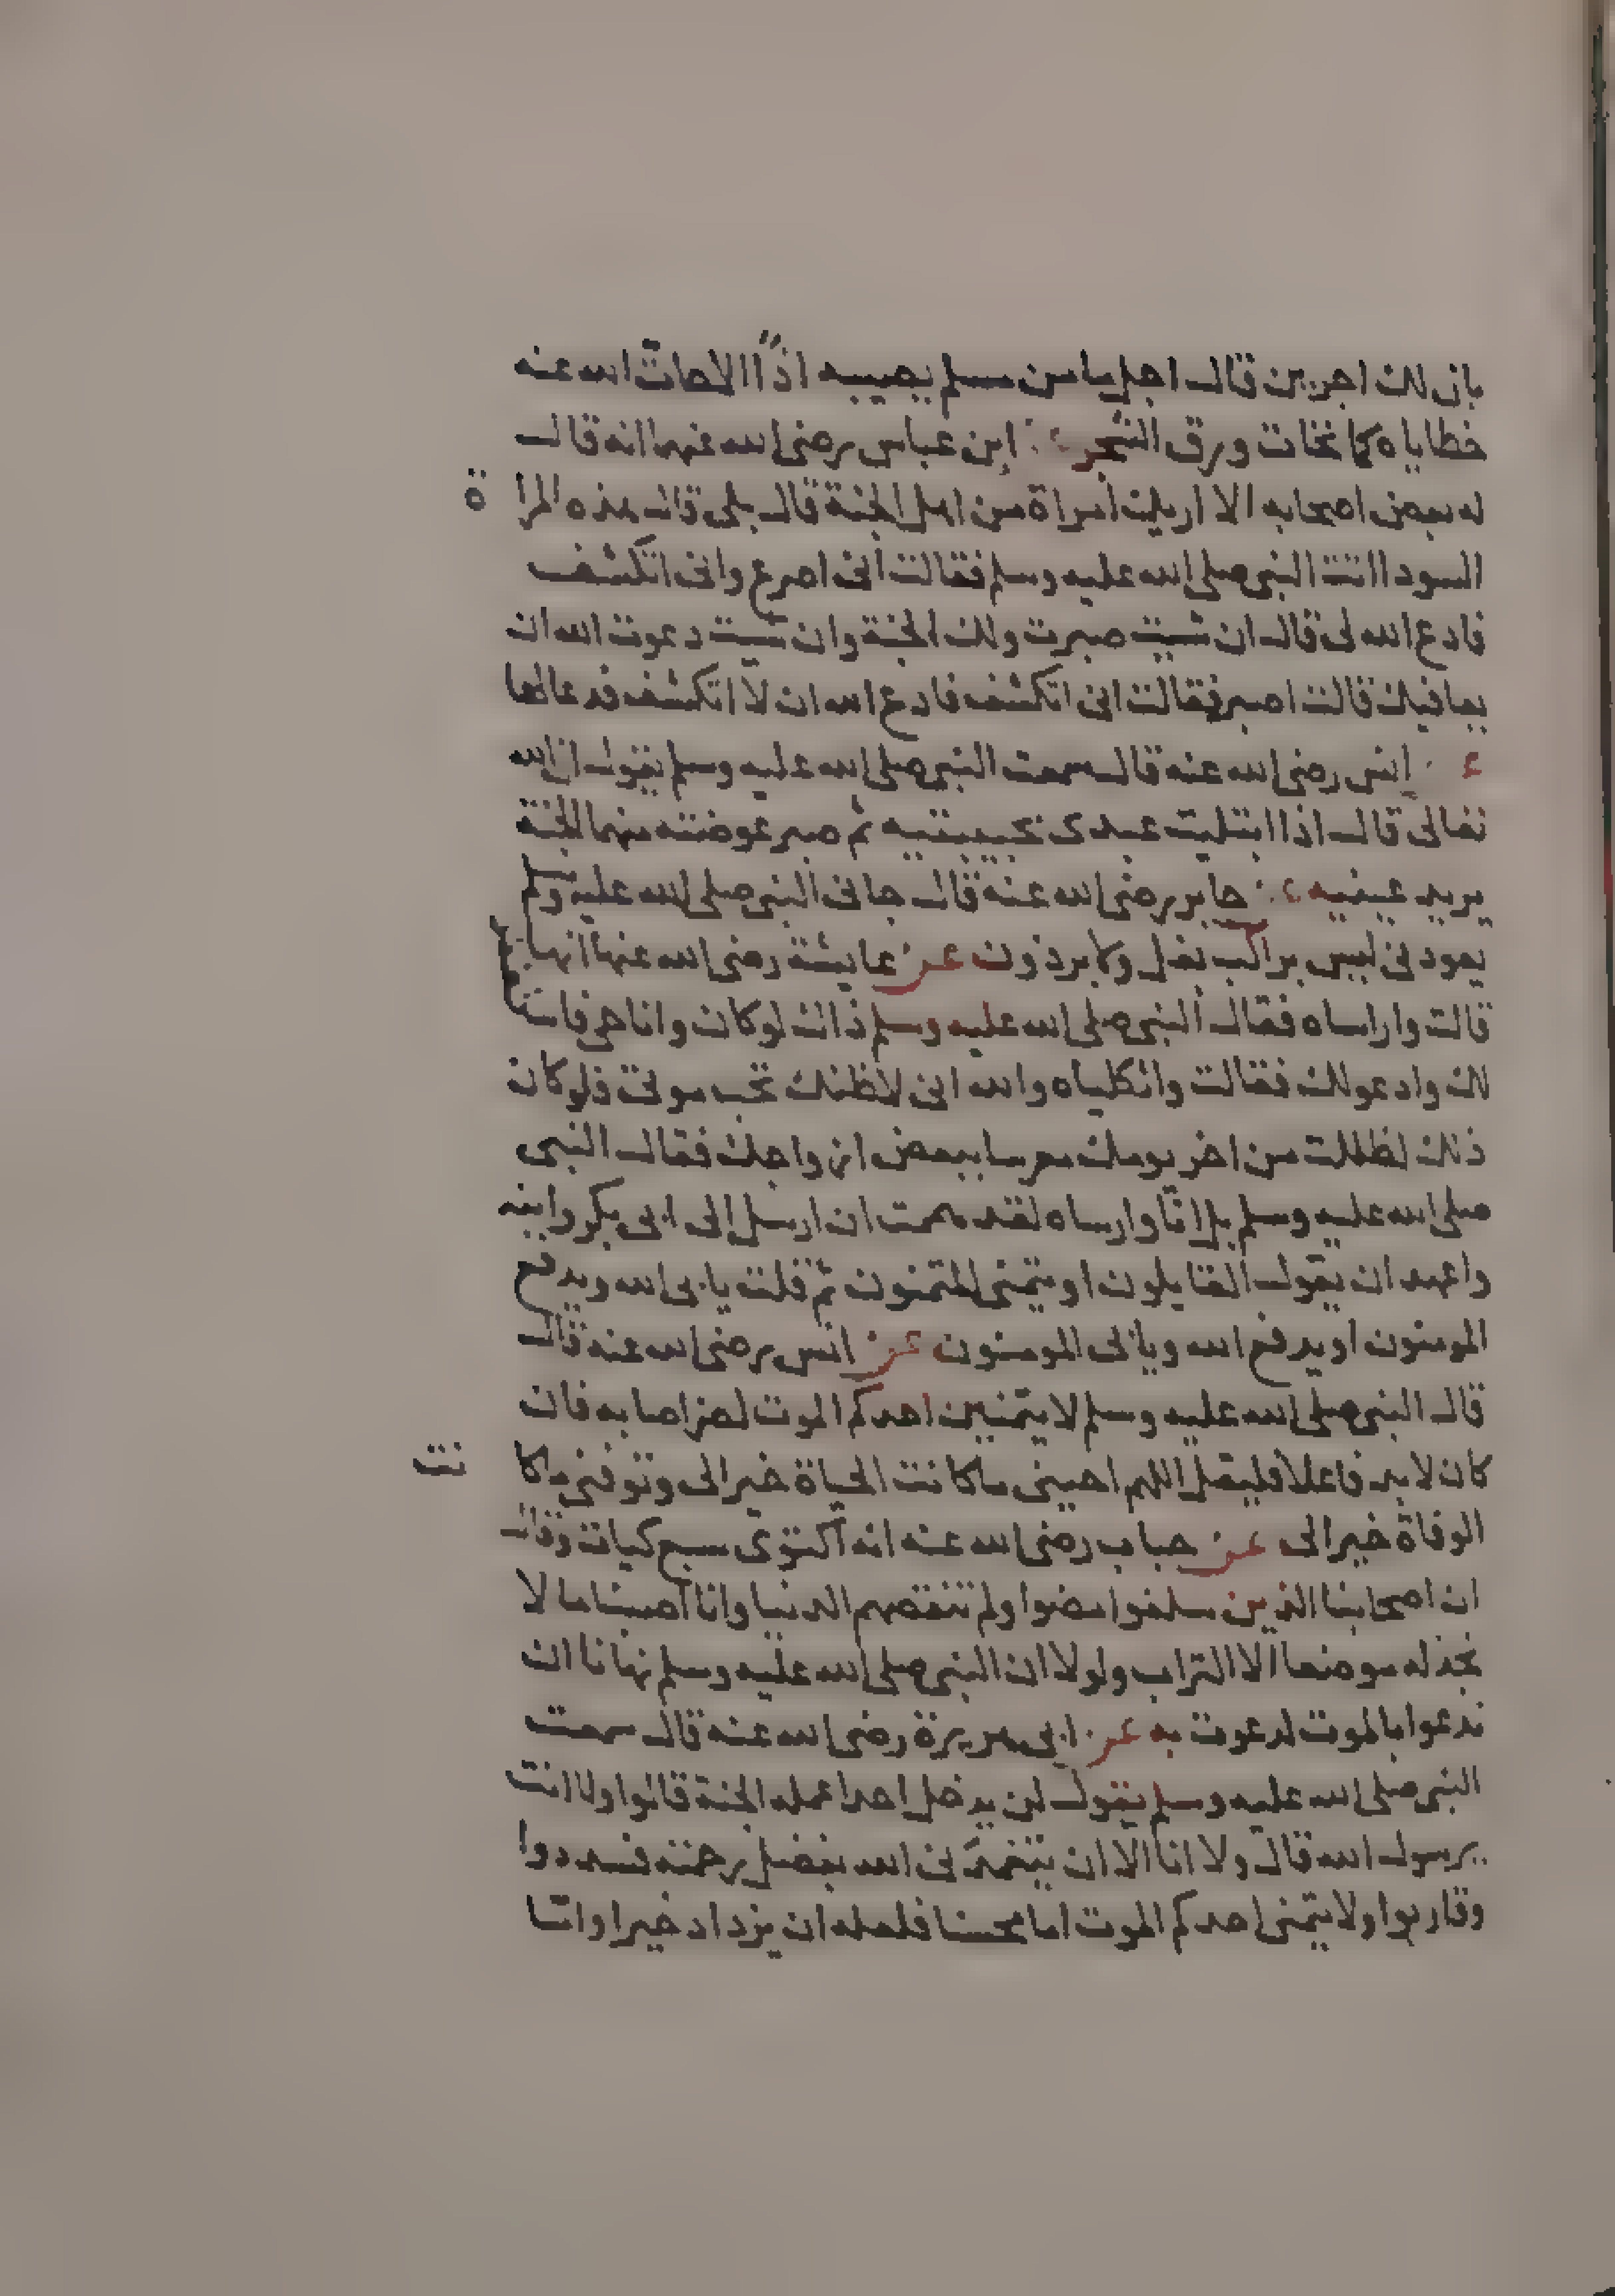 بان لك اجرين قال اجل ما من مسلم يصيبه اذًا الا حاتّ الله عنه
خطاياه كما تحات ورق الشجر عن ابن عباس رضى الله عنهما انه قال
له بعض اصحابه الا اريك امراة من اهل الجنة قال بلى قال هذه المراة
السودا اتت النبى صلى الله عليه وسلم فقالت انى اصرع وانى اتكشف
فادع الله لى قال ان شيت صبرت ولك الجنة وان شيت دعوت الله ان
يعافيك قالت اصبر فقالت انى اتكشف فادع الله ان لا اتكشف فدعا لها
عن انس رضى الله عنه قال سمعت النبى صلى الله عليه وسلم يقول ان الله
تعالى قال اذا ابتليت عبدى بحبيبتيه ثم صبر عوضته منهما الجنة
يريد عينيه عن جابر رضى الله عنه قال جانى النبى صلى الله عليه وسلم
يعودنى ليس براكب بغل ولا برذون عن عايشة رضى الله عنها انها
قالت واراساه فقال النبى صلى الله عليه وسلم ذاك لو كان وانا حى فاستغفر
لك وادعو لك فقالت واثكلياه والله انى لاظنك تحب موتى فلو كان
ذلك لظللت من اخر يومك معرسا ببعض ازواجك فقال النبى
صلى الله عليه وسلم بل انا واراساه لقد هممت ان ارسل إلى ابى بكر وابنه
واعهد ان يقول القايلون او يتمنى المتمنون ثم قلت يابى الله ويدفع
المومنون او يدفع الله ويابى المومنون عن انس رضى الله عنه قال
قال النبى صلى الله عليه وسلم لا يتمنين احدكم الموت لضر اصابه فان
كان لا بد فاعلا فليقل اللهم احينى ما كانت الحياة خيرا لى وتوفنى ما كانت
الوفاة خيرا لى عن خباب رضى الله عنه انه اكتوى سبع كيات وقال
ان اصحابنا الذين سلفوا مضوا ولم تنقصهم الدنيا وانا اصبنا ما لا
نجد له موضعا الا التراب ولولا ان النبى صلى الله عليه وسلم نهانا ان
ندعوا بالموت لدعوت به عن ابى هريرة رضى الله عنه قال سمعت
النبى صلى الله عليه وسلم يقول لن يدخل احدا عمله الجنة قالوا ولا انت
يرسول الله قال ولا انا الا ان يتغمدنى الله بفضل رحمته فسددوا
وقاربوا ولا يتمنى احدكم الموت اما محسنا فلعله ان يزداد خيرا واما